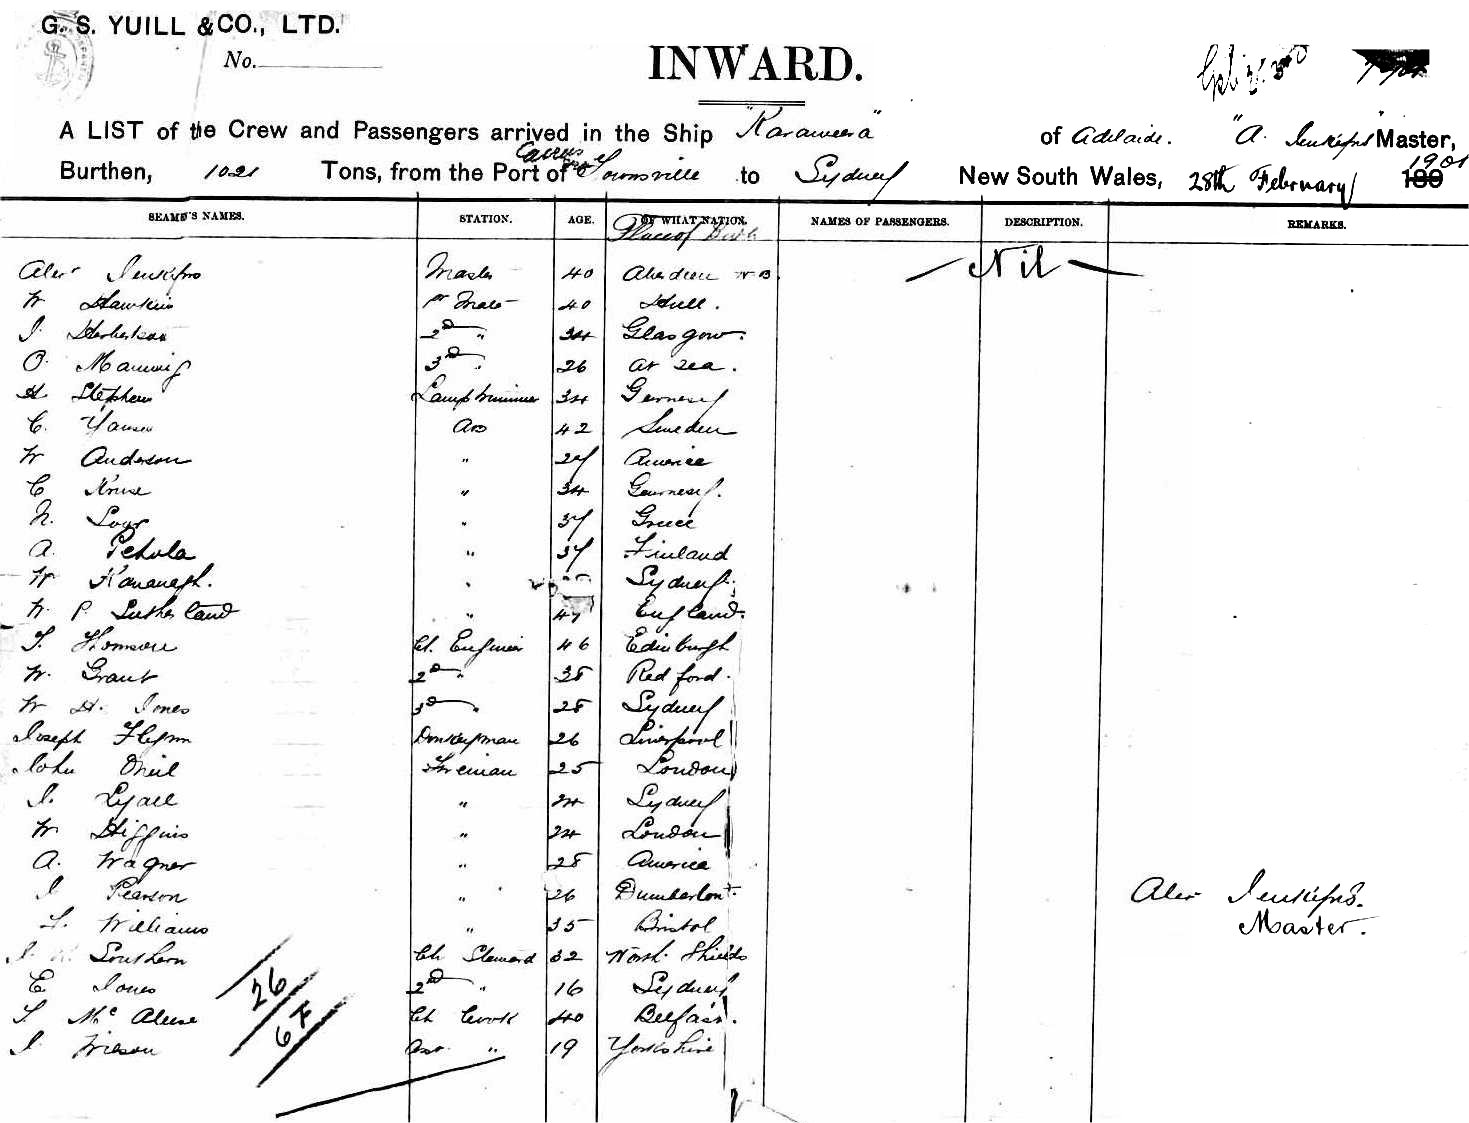 G. S. YUILL & CO., LTD.
No.
INWARD.
A LIST of the Crew and Passengers arrived in the Ship "Karaweera" of Adelaide. "A. Jenkins" Master,
Burthen, 1021 Tons, from the Port of Cairns Townsville to Sydney New South Wales, 28th February 1901
SEAMEN'S NAMES. STATION. AGE. OF WHAT NATION. NAMES OF PASSENGERS. DESCRIPTION. REMARKS.
Place of Birth
Alexr Master 40 Aberdeen N B Nil
W Hawkins Mate 40 Hull.
J. 2d " 34 Glasgow.
O. Manning 3d " 26 at sea.
H Stephen Lamptrimmer 34 Gernesey
C. Yansen AB 42 Sweden
W Anderson " 27 America
C Kruse " 34 Guernesey.
N. " 37 Greece
A. Pehola " 37 Finland
W Kavanagh. " Sydney.
W. P. Sutherland " 47 England.
T. Thomson Ch. Engineer 46 Edinburgh
W. Grant 2d " 38 Redford.
W H. Jones 3d " 28 Sydney
Joseph Flynn Donkeyman 26 Liverpool
John Oneil Fireman 25 London
J. Lyall " 24 Sydney
W Higgins " 24 London
A. Wagner " 28 America
J Pearson " 26 Dumbarton.
Williams " 35 Bristol
J. Southern Ch Steward 32 North Shields
E Jones 2nd " 16 Sydney
Mc Ch Cook 40 Belfast.
J. Wilson Asst. " 19 Yorkshire
Alexr
Master.
26
6 F